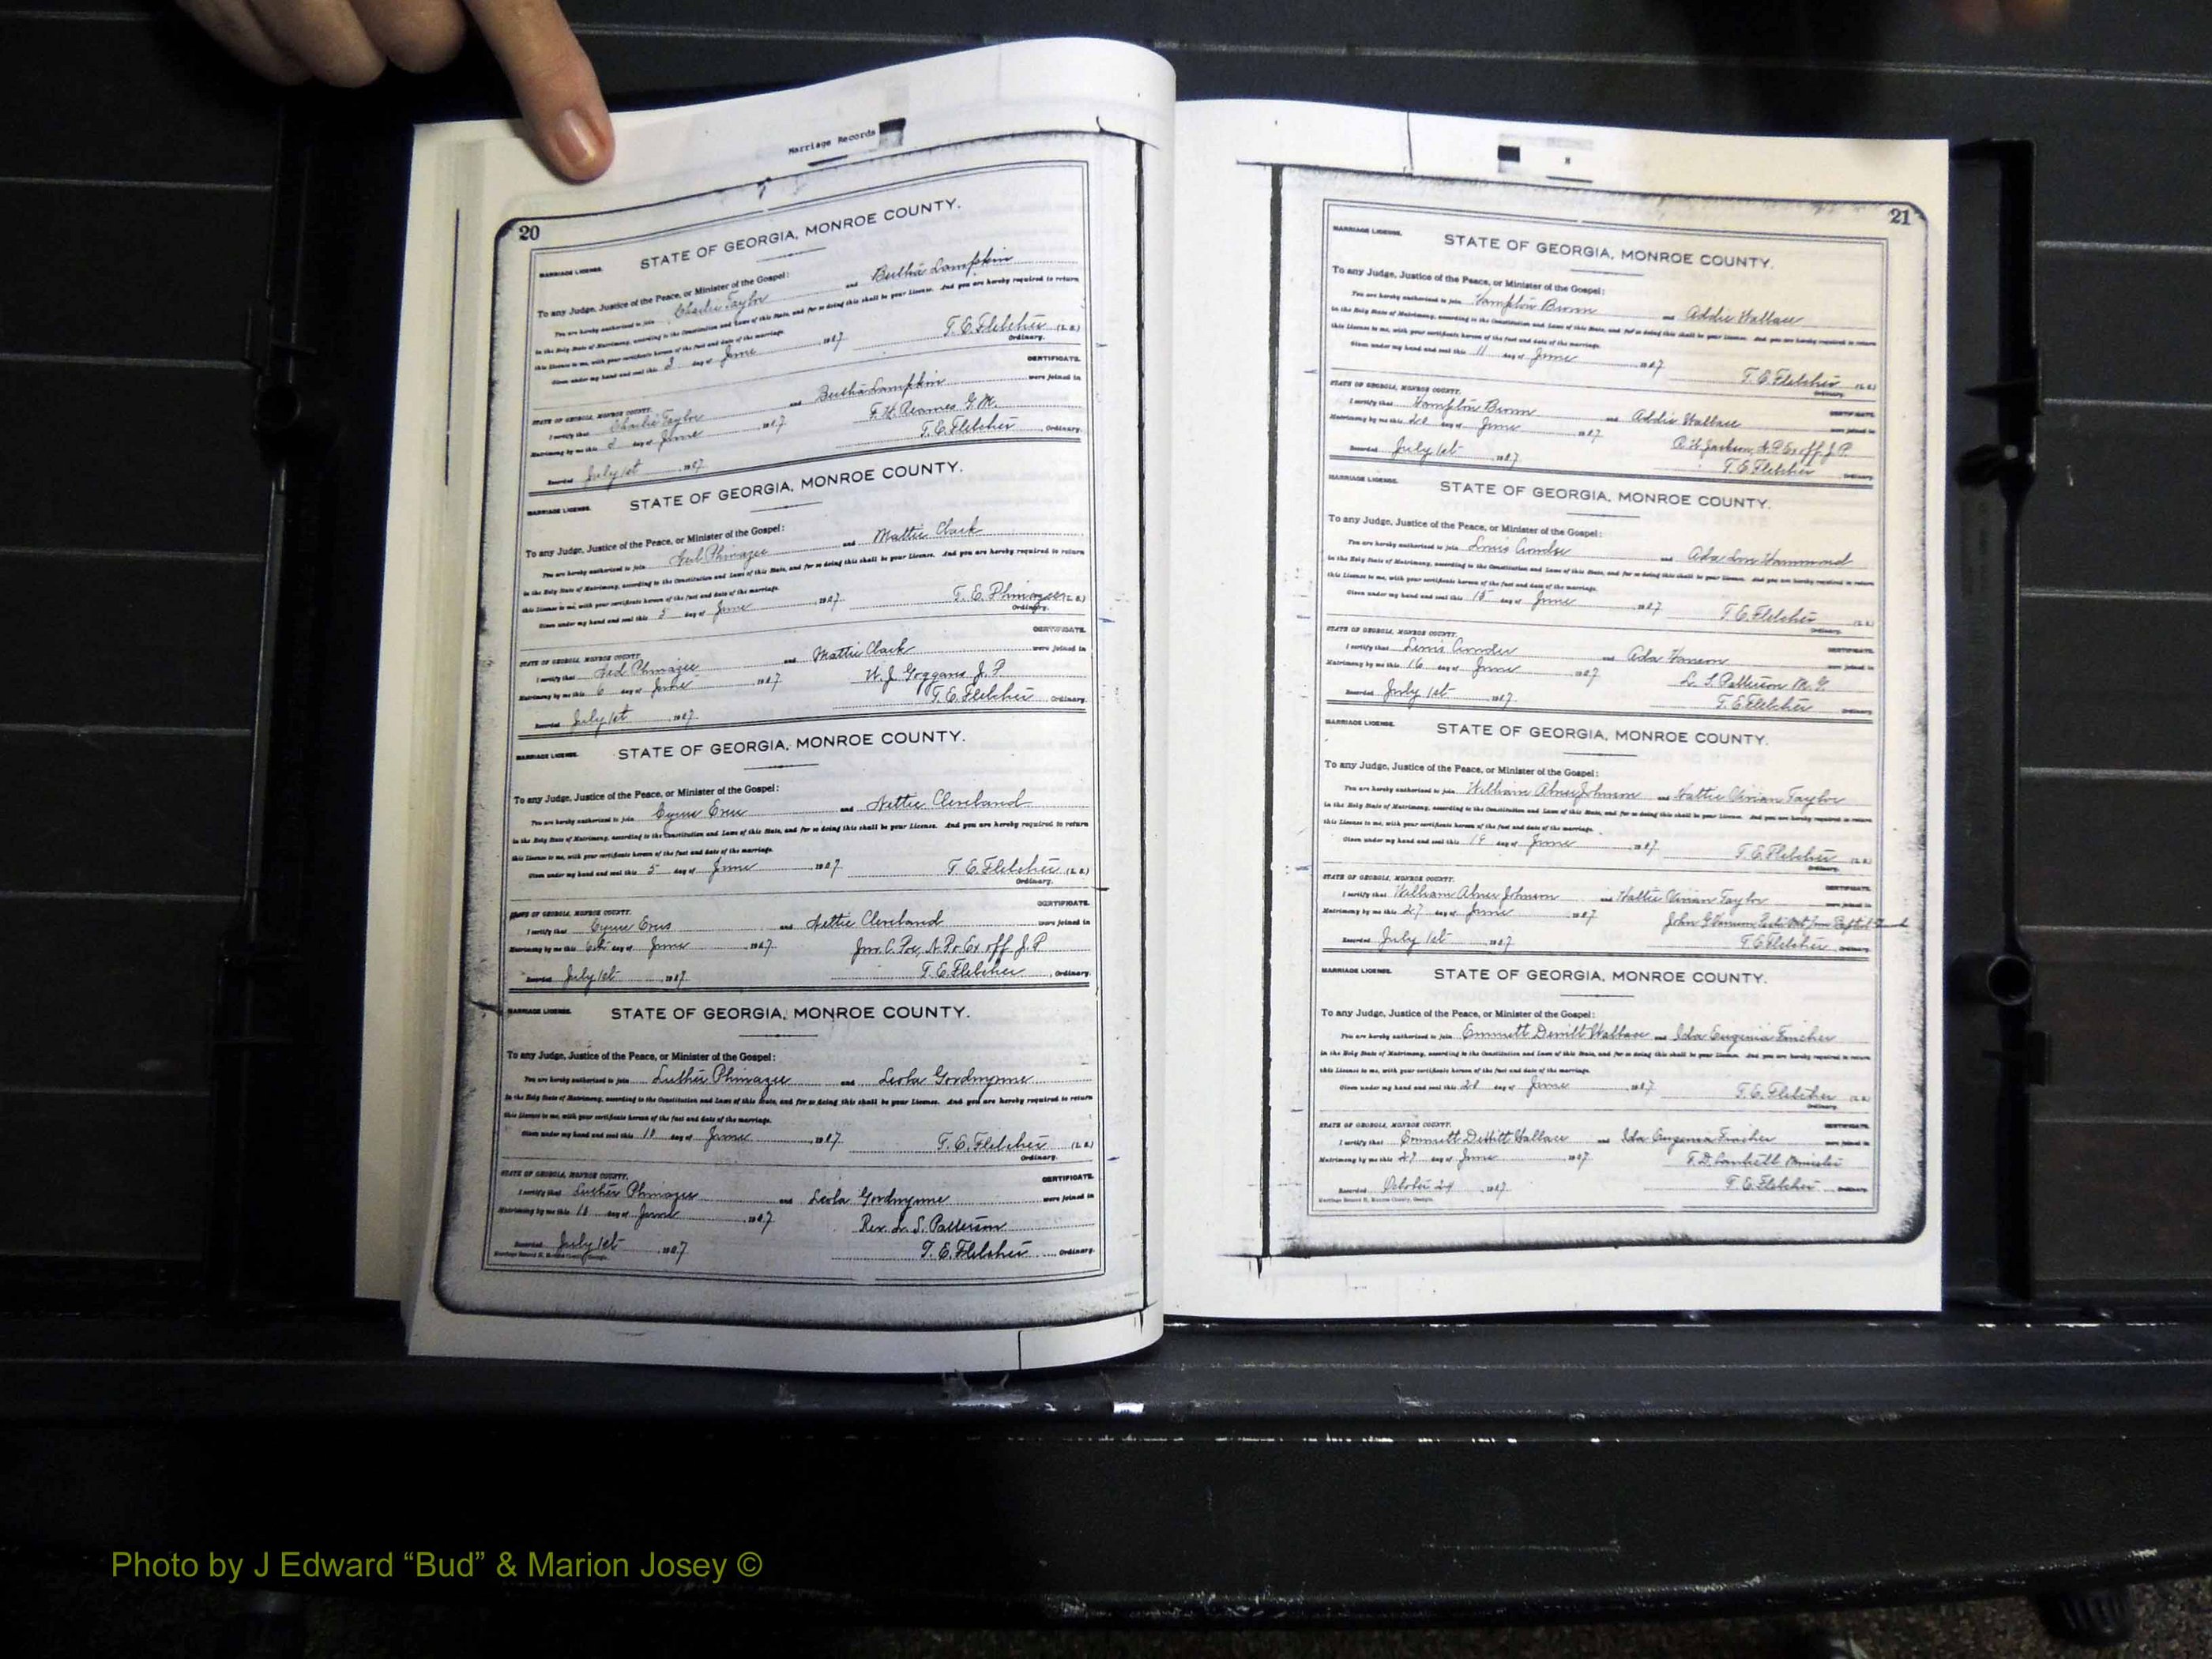 Marriage Records
20
STATE OF GEORGIA, MONROE COUNTY.
MARRIAGE LICENSE.
To any Judge, Justice of the Peace, or Minister of the Gospel:
You are hereby authorized to join Charlie Taylor and Bertha Lampkin
in the Holy State of Matrimony, according to the Constitution and Laws of this State, and for so doing this shall be your License. And you are hereby required to return
this License to me, with your certificate hereon of the fact and date of the marriage.
Given under my hand and seal this day of June 1927
T. E. Fletcher (L. S.)
Ordinary.
CERTIFICATE.
STATE OF GEORGIA, MONROE COUNTY.
I certify that Charlie Taylor and Bertha Lampkin were joined in
Matrimony by me this day of June 1927 Reames
Recorded July 1st 1927 T. E. Fletcher, Ordinary.
STATE OF GEORGIA, MONROE COUNTY.
MARRIAGE LICENSE.
To any Judge, Justice of the Peace, or Minister of the Gospel:
You are hereby authorized to join Phinazee and Mattie Clark
in the Holy State of Matrimony, according to the Constitution and Laws of this State, and for so doing this shall be your License. And you are hereby required to return
this License to me, with your certificate hereon of the fact and date of the marriage.
Given under my hand and seal this 5 day of June 1927
T. E. Phinazee (L. S.)
Ordinary.
CERTIFICATE.
STATE OF GEORGIA, MONROE COUNTY.
I certify that Phinazee and Mattie Clark were joined in
Matrimony by me this 6 day of June 1927 W. J. Goggans J. P.
Recorded July 1st 1927 T. E. Fletcher, Ordinary.
MARRIAGE LICENSE. STATE OF GEORGIA, MONROE COUNTY.
To any Judge, Justice of the Peace, or Minister of the Gospel:
You are hereby authorized to join and Nettie Cleveland
in the Holy State of Matrimony, according to the Constitution and Laws of this State, and for so doing this shall be your License. And you are hereby required to return
this License to me, with your certificate hereon of the fact and date of the marriage.
Given under my hand and seal this 5 day of June 1927 T. E. Fletcher (L. S.)
Ordinary.
CERTIFICATE.
STATE OF GEORGIA, MONROE COUNTY.
I certify that and Nettie Cleveland were joined in
Matrimony by me this 6th day of June 1927 Jno. C. Poe, N. P. & Ex off J. P
Recorded July 1st 1927 T. E. Fletcher, Ordinary.
MARRIAGE LICENSE. STATE OF GEORGIA, MONROE COUNTY.
To any Judge, Justice of the Peace, or Minister of the Gospel:
You are hereby authorized to join Luther Phinazee and Leola Gordnynne
in the Holy State of Matrimony, according to the Constitution and Laws of this State, and for so doing this shall be your License. And you are hereby required to return
this License to me, with your certificate hereon of the fact and date of the marriage.
Given under my hand and seal this day of June 1927 T. E. Fletcher (L. S.)
Ordinary.
STATE OF GEORGIA, MONROE COUNTY. CERTIFICATE.
I certify that Luther Phinazee and Leola Gordnynne were joined in
Matrimony by me this day of June 1927 Rev. L. S. Patterson
Recorded July 1st 1927 T. E. Fletcher Ordinary.
Marriage Record H, Monroe County, Georgia.
21
MARRIAGE LICENSE. STATE OF GEORGIA, MONROE COUNTY.
To any Judge, Justice of the Peace, or Minister of the Gospel:
You are hereby authorized to join Hampton Brown and Addie Wallace
in the Holy State of Matrimony, according to the Constitution and Laws of this State, and for so doing this shall be your License. And you are hereby required to return
this License to me, with your certificate hereon of the fact and date of the marriage.
Given under my hand and seal this 11 day of June 1927
T. E. Fletcher (L. S.)
Ordinary.
STATE OF GEORGIA, MONROE COUNTY. CERTIFICATE.
I certify that Hampton Brown and Addie Wallace were joined in
Matrimony by me this day of June 1927 Jackson, N. P. Ex off. J. P.
Recorded July 1st 1927 T. E. Fletcher, Ordinary.
MARRIAGE LICENSE. STATE OF GEORGIA, MONROE COUNTY.
To any Judge, Justice of the Peace, or Minister of the Gospel:
You are hereby authorized to join Louis and Ada Lou Hammond
in the Holy State of Matrimony, according to the Constitution and Laws of this State, and for so doing this shall be your License. And you are hereby required to return
this License to me, with your certificate hereon of the fact and date of the marriage.
Given under my hand and seal this 15 day of June 1927
T. E. Fletcher (L. S.)
Ordinary.
STATE OF GEORGIA, MONROE COUNTY. CERTIFICATE.
I certify that Louis and Ada were joined in
Matrimony by me this 16 day of June 1927 L. S. Patterson M. G.
Recorded July 1st 1927 T. E. Fletcher Ordinary.
MARRIAGE LICENSE. STATE OF GEORGIA, MONROE COUNTY.
To any Judge, Justice of the Peace, or Minister of the Gospel:
You are hereby authorized to join William Abner Johnson and Hattie Vivian Taylor
in the Holy State of Matrimony, according to the Constitution and Laws of this State, and for so doing this shall be your License. And you are hereby required to return
this License to me, with your certificate hereon of the fact and date of the marriage.
Given under my hand and seal this 19 day of June 1927
T. E. Fletcher (L. S.)
Ordinary.
STATE OF GEORGIA, MONROE COUNTY. CERTIFICATE.
I certify that William Abner Johnson and Hattie Vivian Taylor were joined in
Matrimony by me this 27 day of June 1927 John G. Baptist Church
Recorded July 1st 1927 T. E. Fletcher, Ordinary.
MARRIAGE LICENSE. STATE OF GEORGIA, MONROE COUNTY.
To any Judge, Justice of the Peace, or Minister of the Gospel:
You are hereby authorized to join Emmett Dewitt Wallace and Ida Eugenia Fincher
in the Holy State of Matrimony, according to the Constitution and Laws of this State, and for so doing this shall be your License. And you are hereby required to return
this License to me, with your certificate hereon of the fact and date of the marriage.
Given under my hand and seal this day of June 1927 T. E. Fletcher (L. S.)
Ordinary.
STATE OF GEORGIA, MONROE COUNTY. CERTIFICATE.
I certify that Emmett DeWitt Wallace and Ida Eugenia Fincher were joined in
Matrimony by me this day of June 1927 Minister
Recorded October 24 1927 T. E. Fletcher Ordinary.
Marriage Record H, Monroe County, Georgia.
Photo by J Edward “Bud” & Marion Josey ©